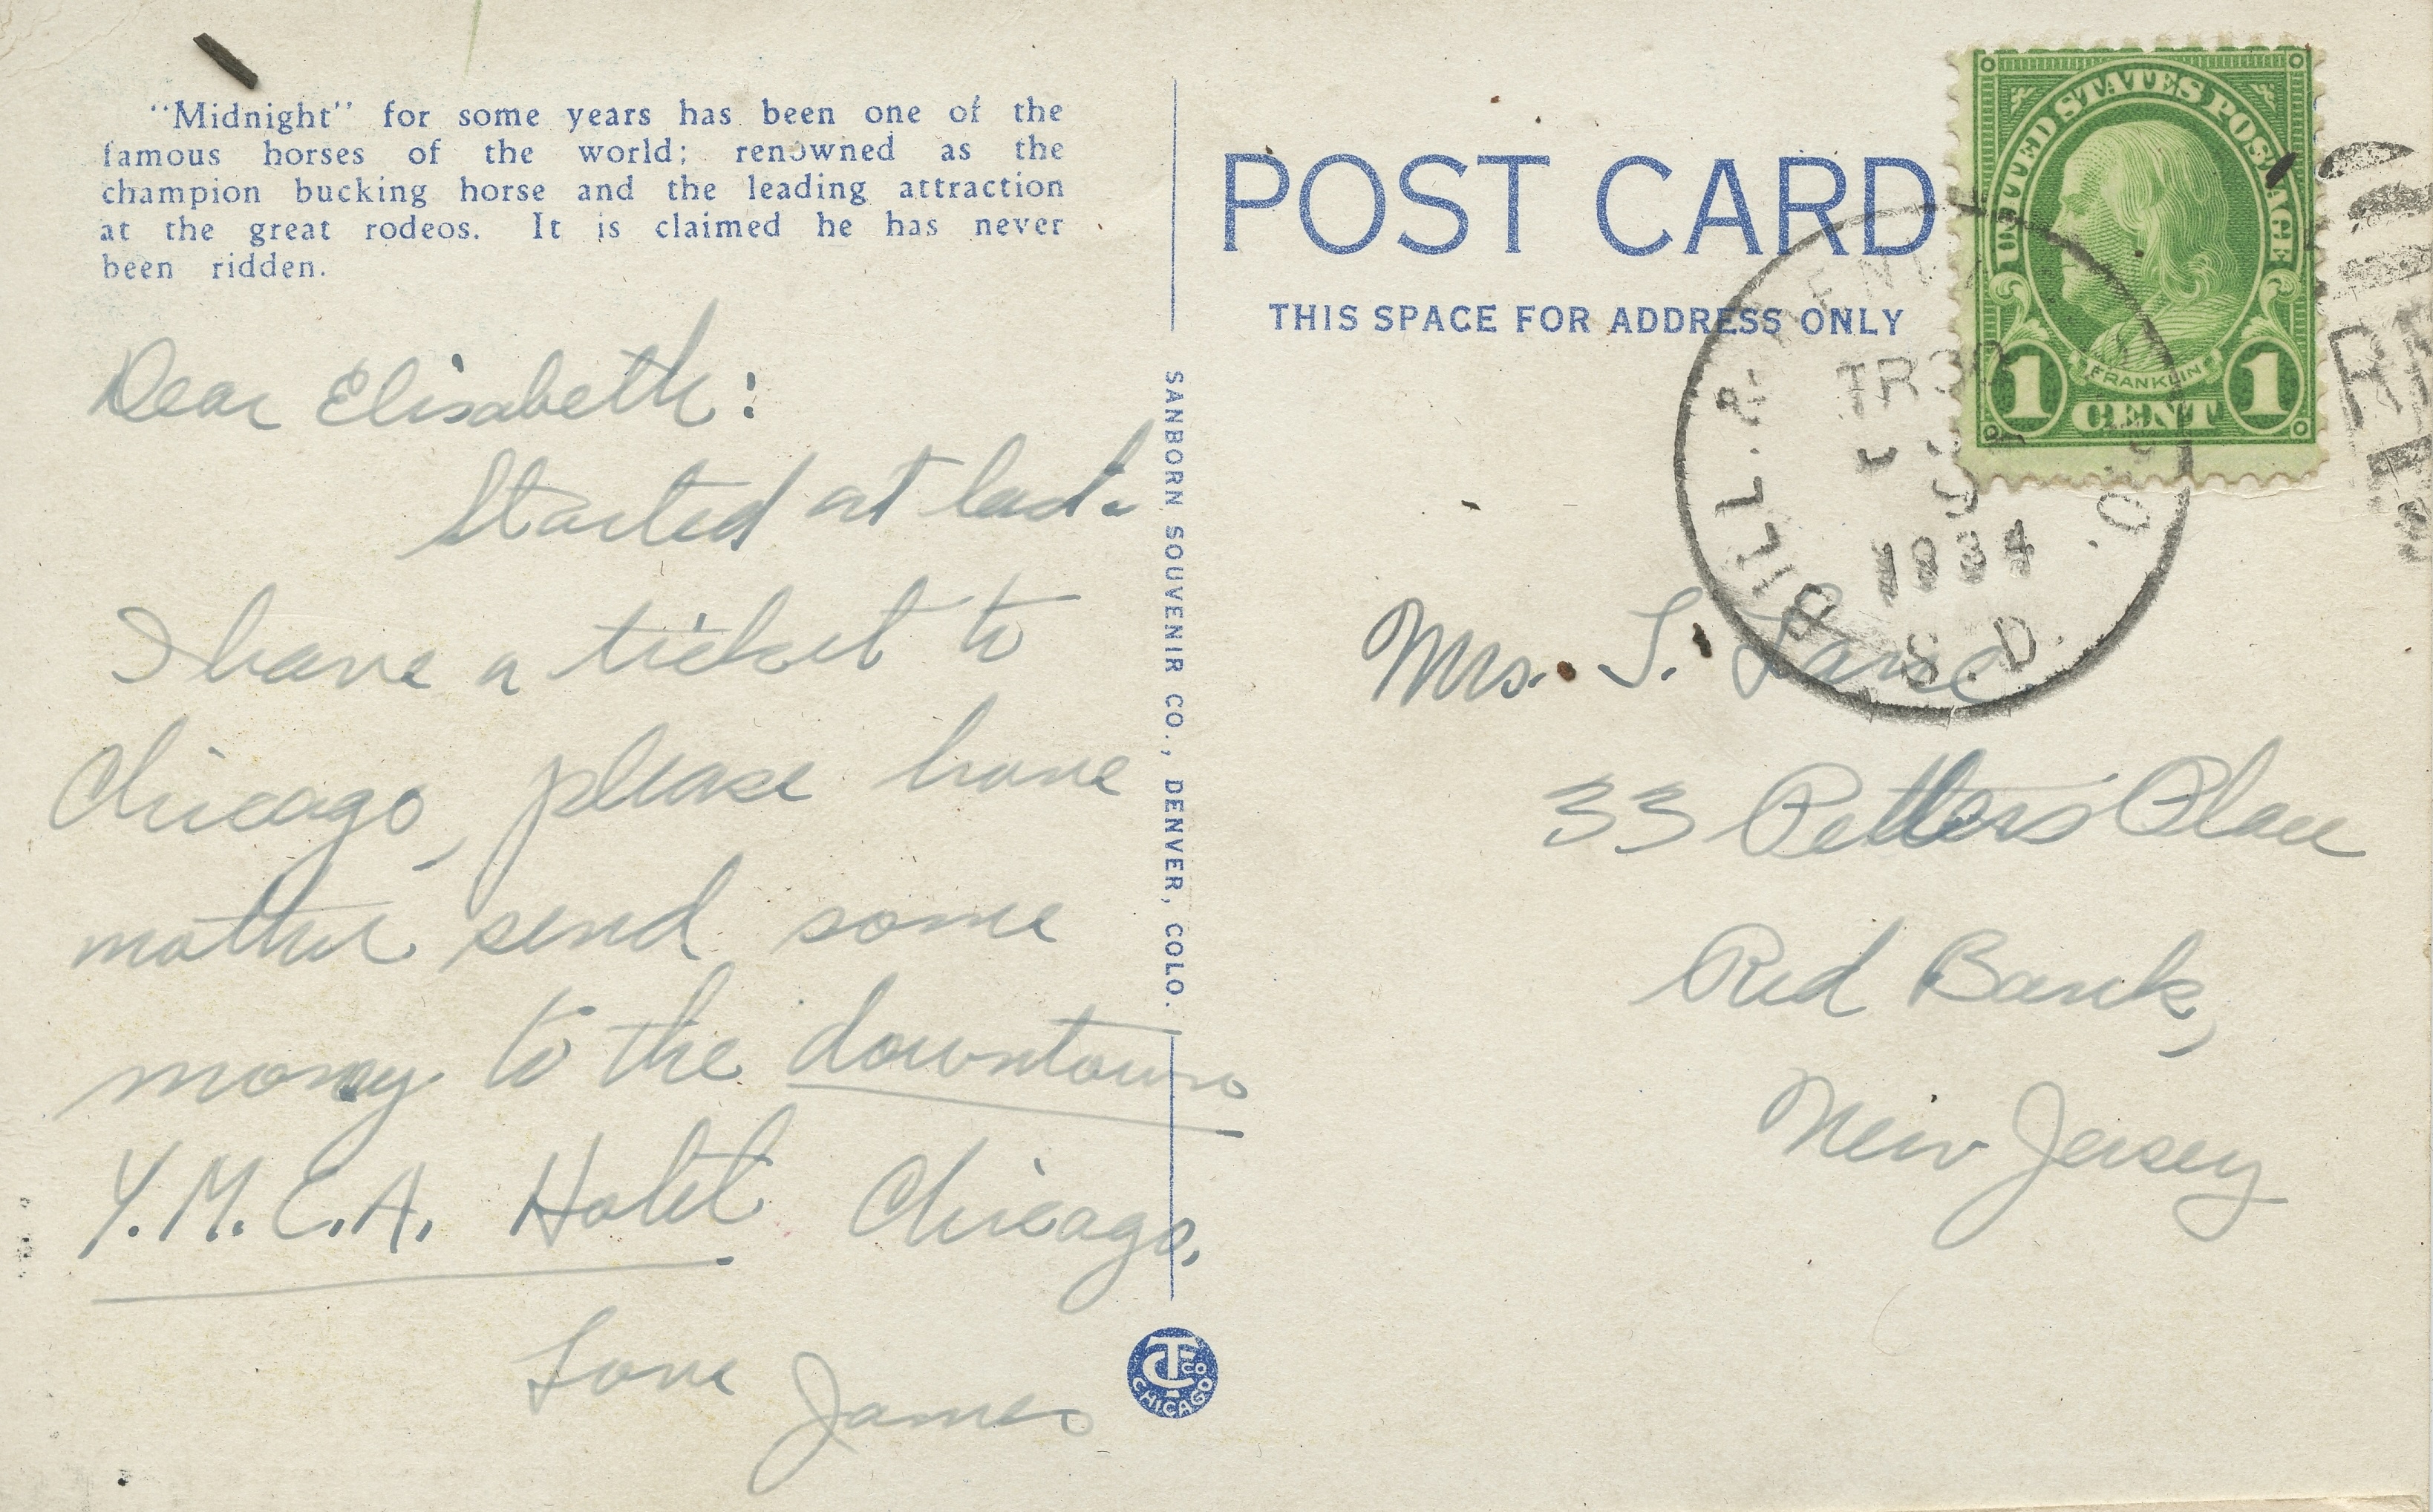 "Midnight" for some years has been one of the
famous horses of the world; renowned as the
champion bucking horse and the leading attraction
at the great rodeos. It is claimed he has never
been ridden.
Dear Elisabeth:
Started at last.
I have a ticket to
Chicago, please have
mother send some
money to the downtown
Y.M.C.A. Hotel Chicago.
Love
James
SANBORN SOUVENIR CO., DENVER, COLO.
CTCO
CHICAGO
POST CARD
THIS SPACE FOR ADDRESS ONLY
UNITED STATES POSTAGE
FRANKLIN
1 CENT 1
BILL. &
TR
1934
S. D.
Mrs. S. Lane
33 Petters Place
Red Bank,
New Jersey